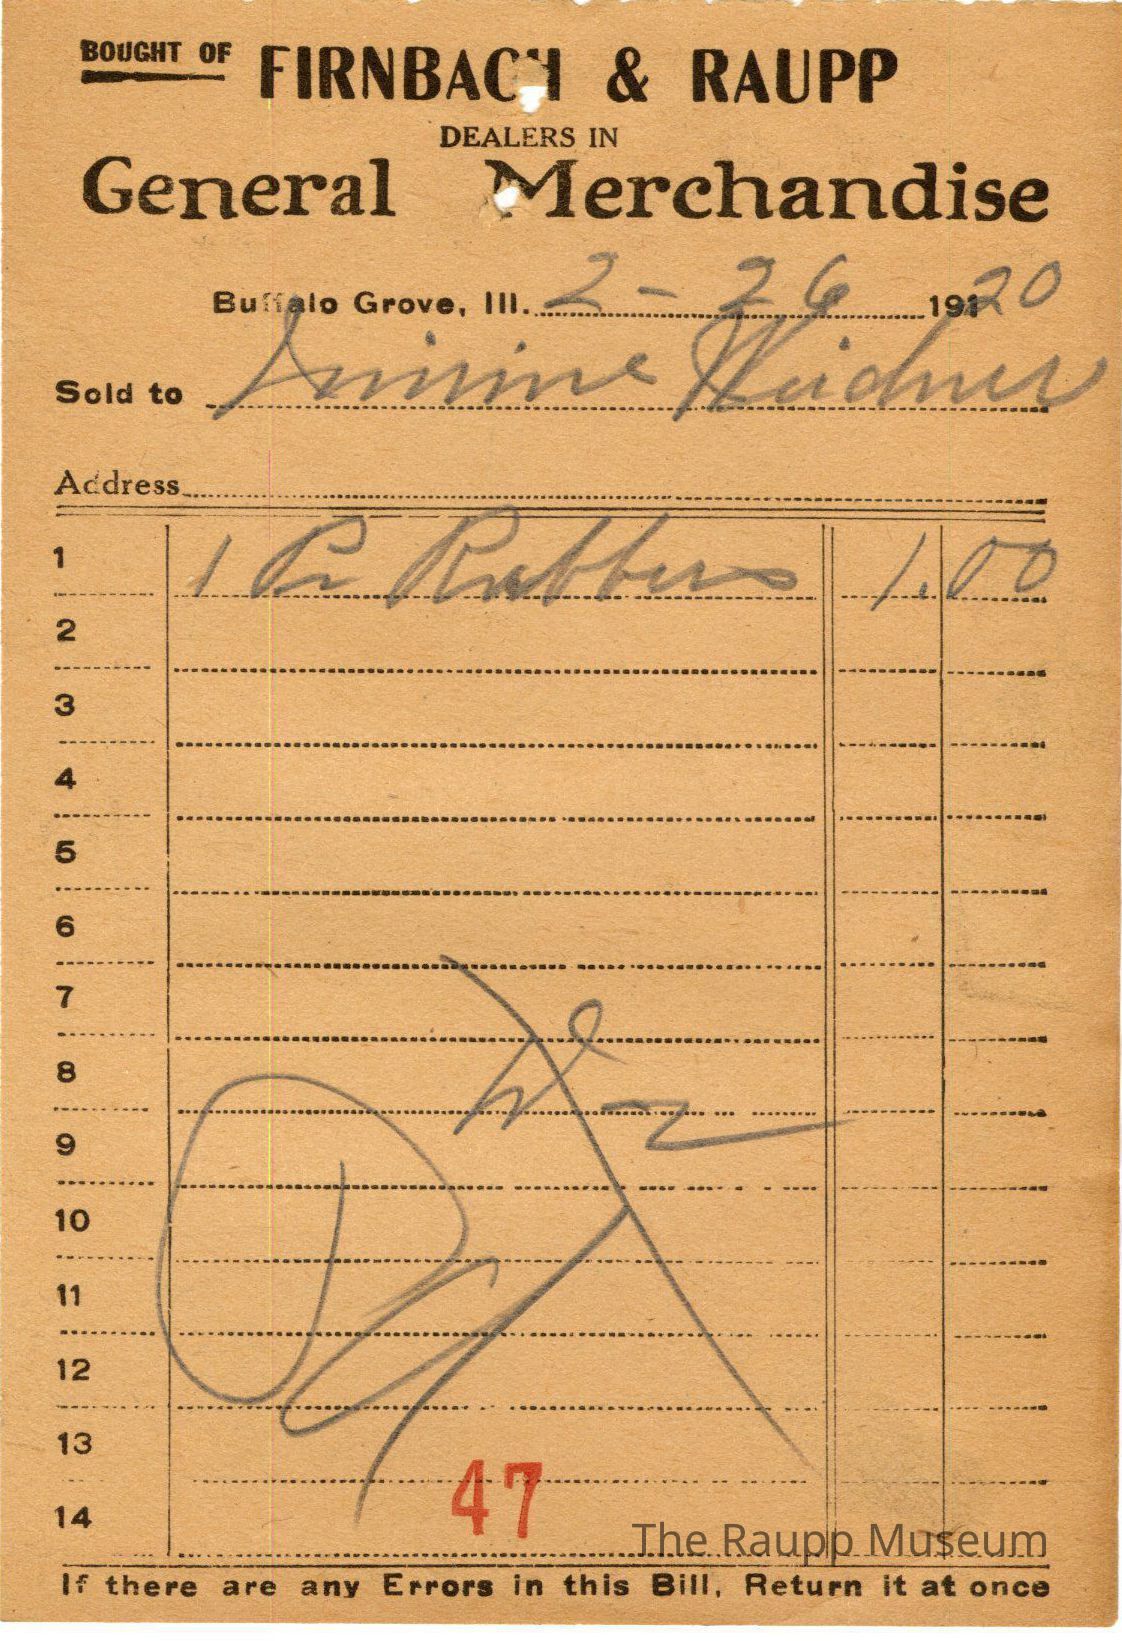 BOUGHT OF FIRNBACH & RAUPP
DEALERS IN
General Merchandise
Buffalo Grove, Ill. 2-26 1920
Sold to Weidner
Address
1 1 Pr Rubbers 1.00
2
3
4
5
6
7
8
9
10
11
12
13
47
14
The Raupp Museum
If there are any Errors in this Bill, Return it at once